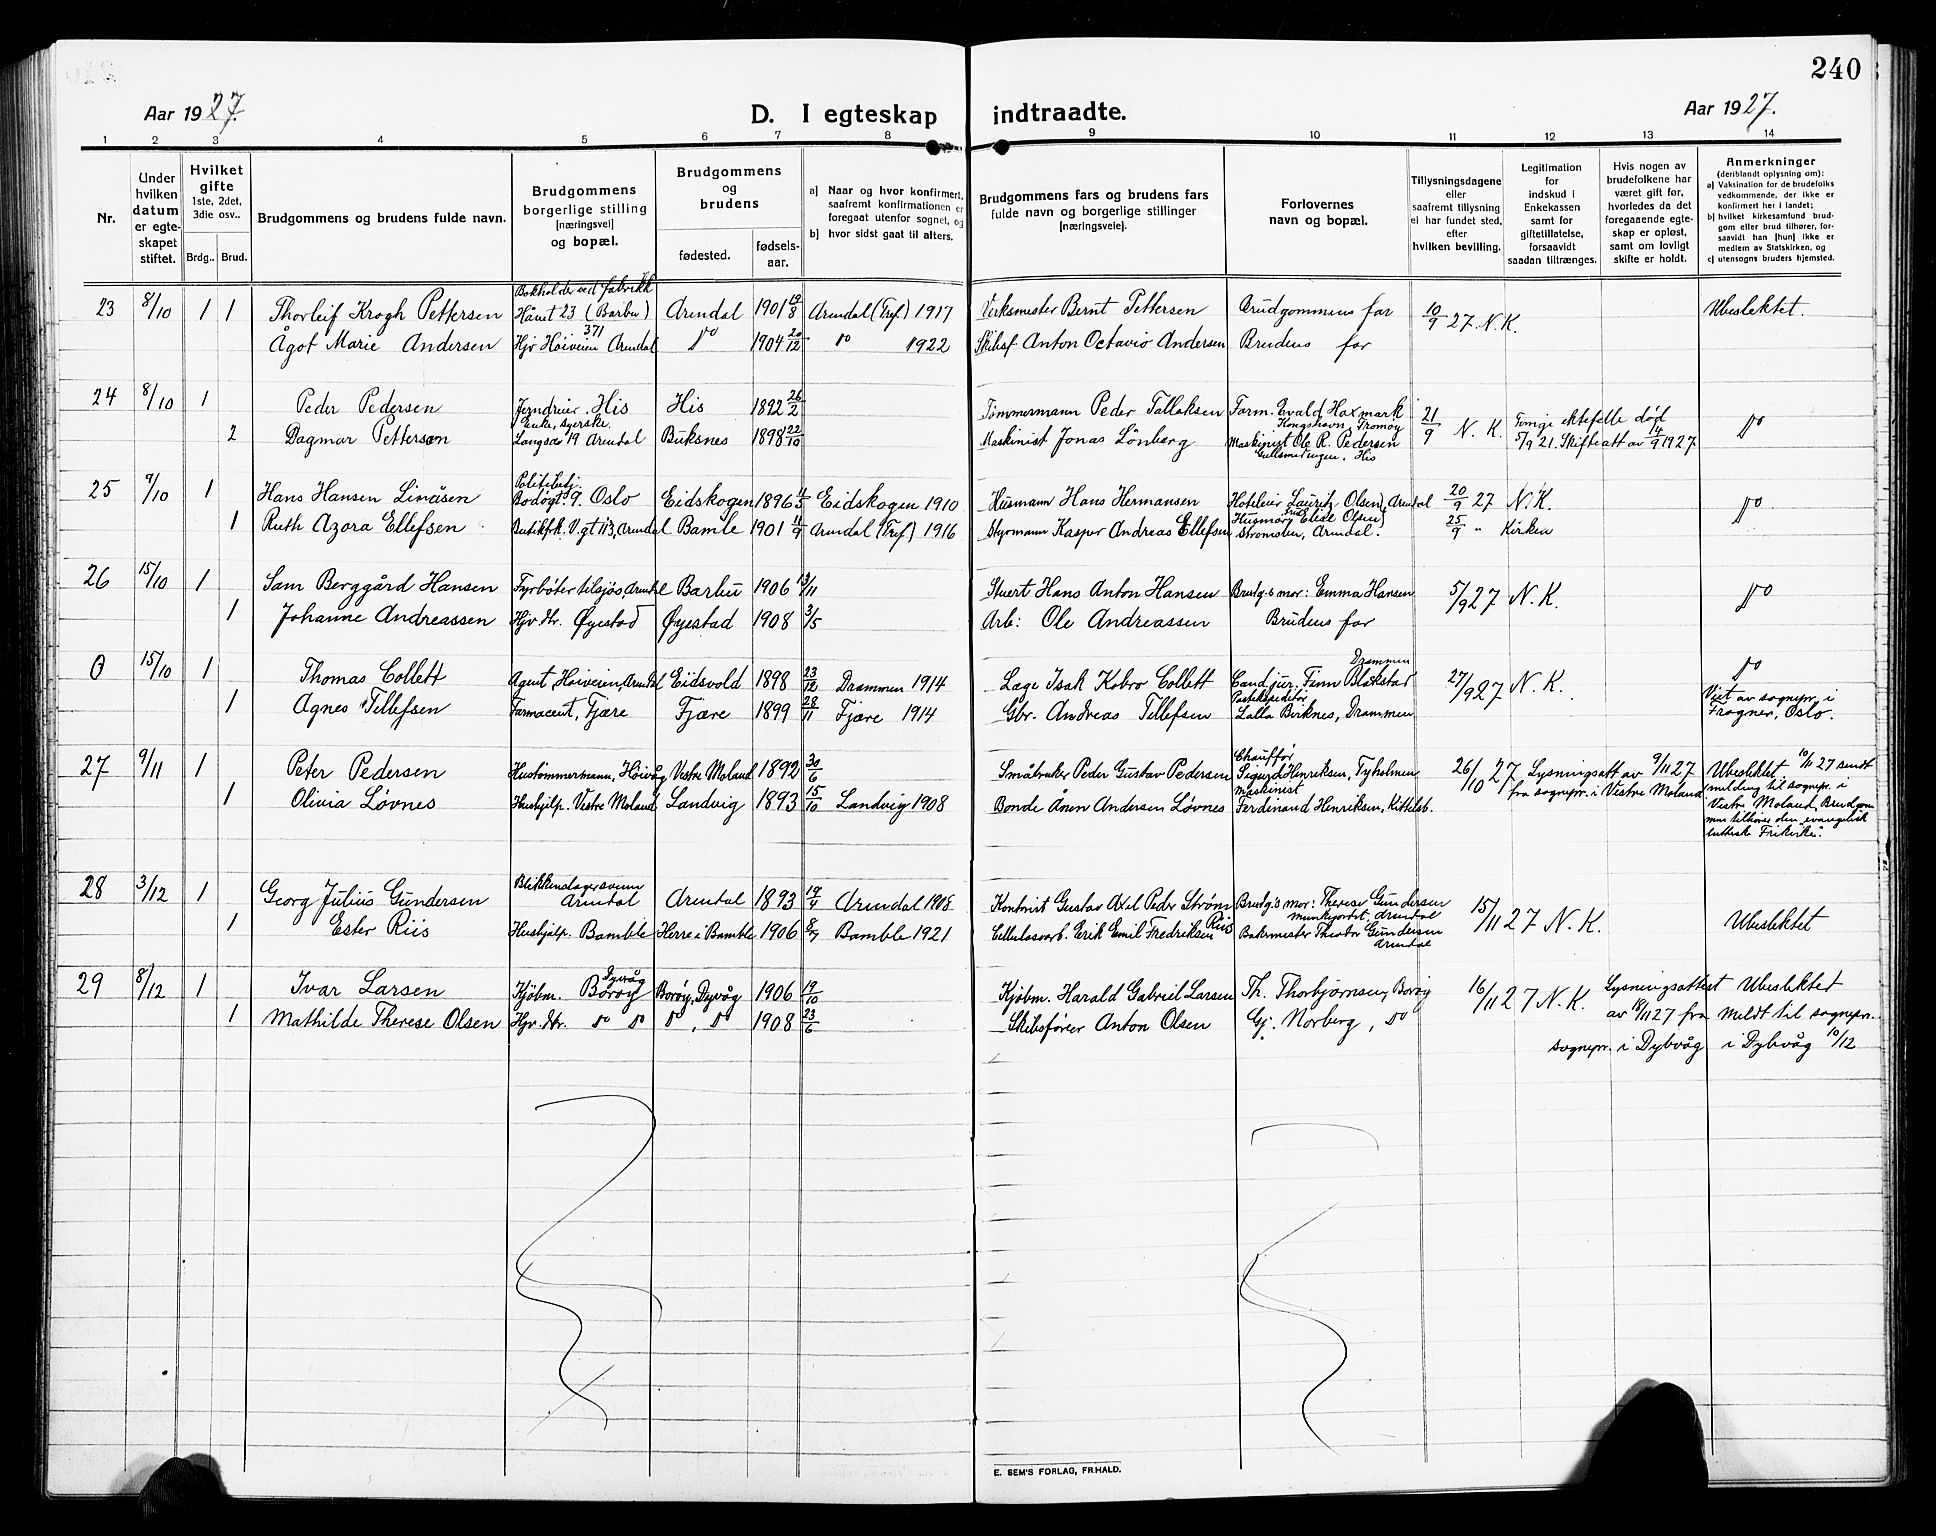 240
Aar 1927.
D. I egteskap indtraadte.
Aar 1927.
1 2 3 4 5 6 7 8 9 10 11 12 13 14
Nr.
Under hvilken datum er egteskapet stiftet.
Hvilket gifte 1ste, 2det, 3die osv..
Brdg.. Brud.
Brudgommens og brudens fulde navn.
Brudgommens borgerlige stilling (næringsvei) og bopæl.
Brudgommens og brudens
fødested. fødselsaar.
a) Naar og hvor konfirmert, saafremt konfirmationen er foregaat utenfor sognet, og
b) hvor sidst gaat til alters.
Brudgommens fars og brudens fars fulde navn og borgerlige stillinger (næringsveie).
Forlovernes navn og bopæl.
Tillysningsdagene eller saafremt tillysning ei har fundet sted, efter hvilken bevilling.
Legitimation for indskud i Enkekassen samt for giftetillatelse, forsaavidt saadan tiltrænges.
Hvis nogen av brudefolkene har været gift før, hvorledes da det foregaaende egteskap er opløst, samt om lovligt skifte er holdt.
Anmerkninger (deriblandt oplysning om):
a) Vaksination for de brudefolks vedkommende, der ikke er konfirmert her i landet;
b) hvilket kirkesamfund brudgom eller brud tilhører, forsaavidt han [hun] ikke er medlem av Statskirken, og
c) utensogns bruders hjemsted.
23 8/10 1 1 Thorleif Krogh Pettersen Bokholder ved fabrikk Hånet 23 (Barbu) Arendal 1901 19/8 Arendal (Tref.) 1917 Verksmester Bernt Pettersen Brudgommens far 10/9 27 N. K. Ubeslektet.
Ågot Marie Andersen Hjv Høiveien 371 Arendal Do 1904 20/12 do 1922 Skibsf Anton Octavio Andersen Brudens far
24 8/10 1 Peder Pedersen Jerndreier. His His 1892 26/2 Tømmermann Peder Tallaksen Form. Evald Haxmark Kongshavn, Tromøy 21/9 N. K. Forrige ektefelle død 5/9 21. Skifteatt av 14/9 1927. Do
2 Dagmar Petterson Enke, syerske. Langsæ 19 Arendal Buksnes 1898 22/10 Maskinist Jonas Lönberg Maskinist Ole R. Pedersen Gullsmedengen, His
25 9/10 1 Hans Hansen Linåsen Politibetj. Bodøgt. 9. Oslo Eidskogen 1896 11/3 Eidskogen 1910 Husmann Hans Hermansen Hoteleier Lauritz Olsen, Arendal 20/9 27 N. K. Do
1 Ruth Azora Ellefsen Butikfrk. V. gt 113, Arendal Bamle 1901 11/9 Arendal (Tref.) 1916 Styrmann Kasper Andreas Ellefsen Husmor Elise Olsen Strømsbu, Arendal. 25/9 " Kirken
26 15/10 1 Sam Berggård Hansen Fyrbøter tilsjøs, Arendal Barbu 1906 13/11 Stuert Hans Anton Hansen Brudg.s mor: Emma Hansen 5/9 27 N. K. Do
1 Johanne Andreassen Hjv. dtr. Øyestad Øyestad 1908 3/5 Arb: Ole Andreassen Brudens far
0 15/10 1 Thomas Collett Agent, Høiveien, Arendal Eidsvold 1898 23/12 Drammen 1914 Læge Isak Kobro Collett Cand jur. Finn Blakstad Drammen 27/9 27 N. K. Do
1 Agnes Tellefsen Farmaceut, Fjære Fjære 1899 28/11 Fjære 1914 Gbr. Andreas Tellefsen Lalla Birknes, Drammen Viet av sognepr. i Frogner, Oslo.
27 9/11 1 Peter Pedersen Hustømmermann, Høivåg Vestre Moland 1892 30/6 Småbruker Peder Gustav Pedersen Chauffør Sigurd Henriksen, Tyholmen 26/10 27 Lysningsatt av 9/11 27 fra sognepr. i Vestre Moland Ubeslektet 10/11 27 sendt melding til sognepr. i Vestre Moland, Brudgommen tilhører den "evangelisk lutherske Frikirke".
1 Olivia Løvnes Hushjelp. Vestre Moland Landvig 1893 15/10 Landvig 1908 Bonde Ånen Andersen Løvnes maskinist Ferdinand Henriksen, Kittelsb.
28 3/12 1 Georg Julius Gundersen Blikkenslagersvenn Arendal Arendal 1893 19/4 Arendal 1908 Kontorist Gustav Axel Peder Strøm Brudg's mor: Therese Gundersen Munkejordet, Arendal 15/11 27 N. K. Ubeslektet
1 Ester Riis Hushjelp. Bamble Herre i Bamble 1906 8/7 Bamble 1921 Cellulosearb. Erik Emil Fredriksen Riis Bakermester Theodor Gundersen Arendal
29 8/12 1 Ivar Larsen Kjøbm. Borøy Dyvåg Borøy, Dyvåg 1906 19/10 Kjøbm. Harald Gabriel Larsen Th. Thorbjørnsen, Borøy 16/11 27 N. K. Lysningsattest av 18/11 27 fra sognepr. i Dybvåg Ubeslektet Meldt til sognepr. i Dybvåg 10/12
1 Mathilde Therese Olsen Hjv. dtr. do do do, do 1908 23/6 Skibsfører Anton Olsen Gj. Norberg, do
E. SEM'S FORLAG, FR.HALD.